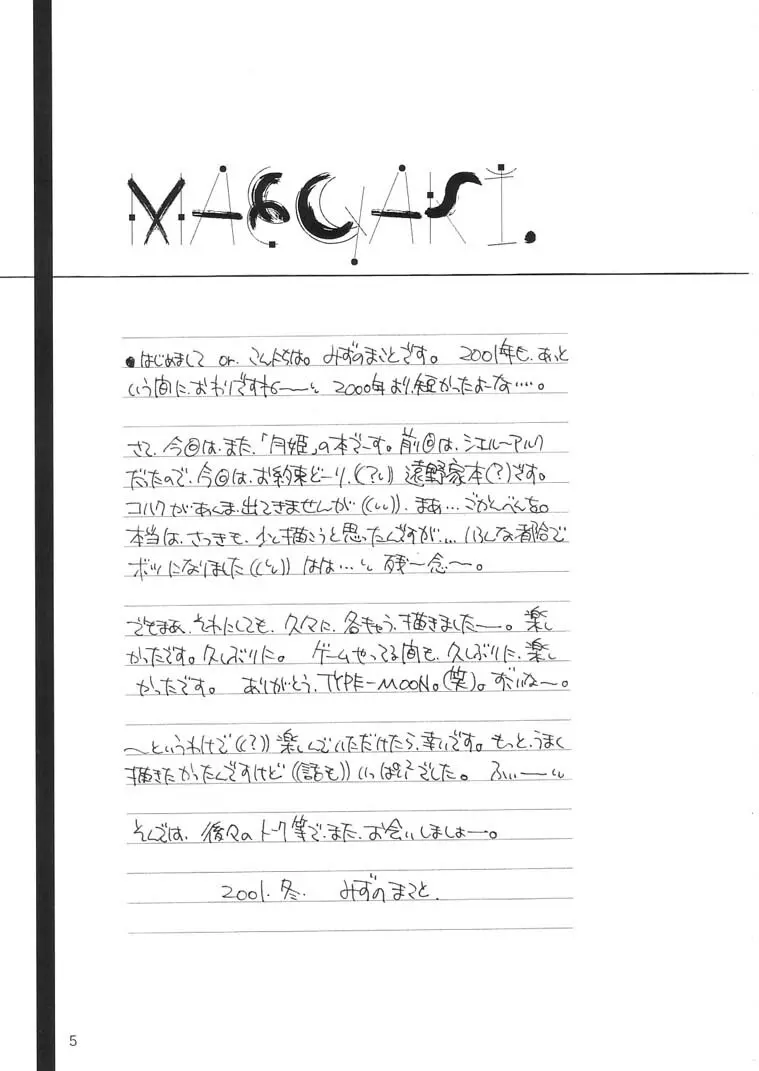 MAEGAKI.
●はじめまして or. こんにちは。みずのまことです。2001年も、あっと
いう間に、おわりですね〜〜ぃ 2000年より、短かったよーな‥‥。
さて、今回は、また、「月姫」の本でーす。前回は、シエルーアルク
だたので、今回は、お約束どーり、(?ぃ) 遠野家本(?)です。
コハクがあんま、出てきませんが((ぃぃ))、まぁ…ごかんべんを。
本当は、さっきも、少し描こうと思ったんですが… いろんな都合で
ボツになりました((ぃ)) はは…ぃ 残〜念〜。
でもまあ、それにしても、久々に、各きゃら、描きましたー。楽し
かったです。久しぶりに。ゲームやってる間も、久しぶりに、楽し
かったです。ありがとう、TYPE-MOON。(笑)。すごいな〜。
〜というわけで((?)) 楽しんでいただけたら、幸いです。もっと、うまく
描きたかったんですけど((話も)) いっぱいでした。ふぃーぃ
そんでは、後々のトーク等で、また、お会いしましょー。
2001. 冬. みずのまこと.
5